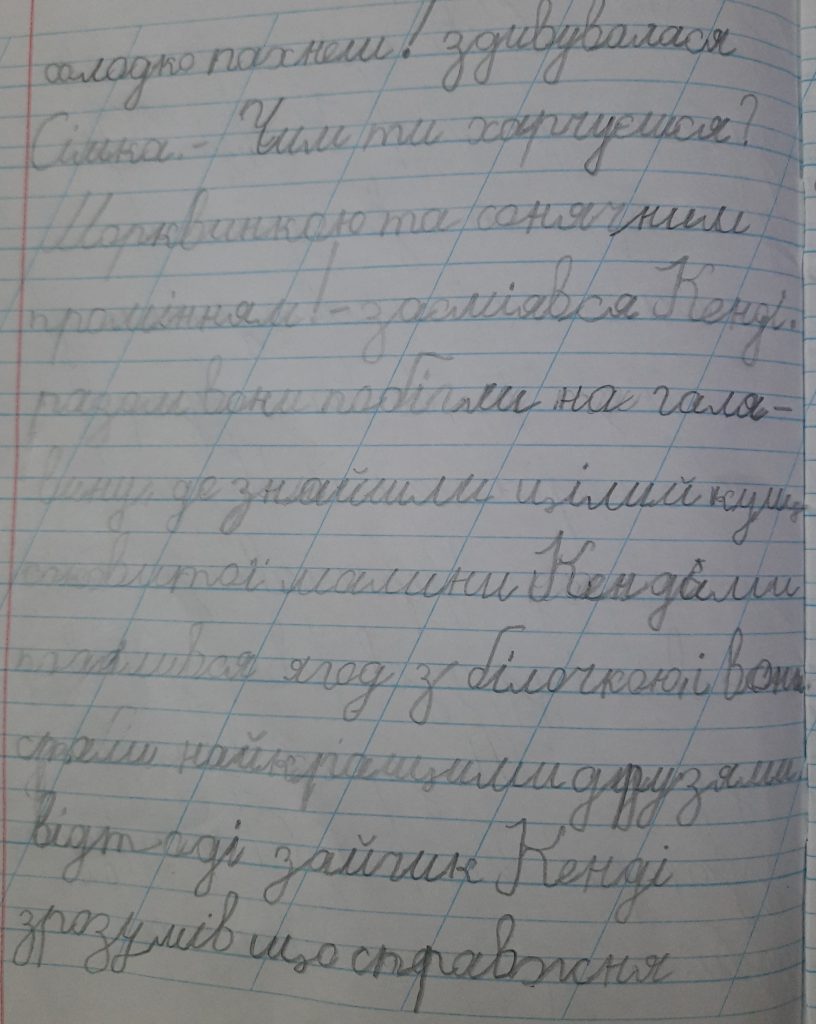 солодко пахнеш! здивувалася
Сімка. - Чим ти харчуєшся?
Морквинкою та сонячним
промінням! - засміявся Кенді.
разом вони побігли на галя-
вину, де знайшли цілий кущ
малини Кенді
ягод з білочкою, і вони
стали найкращими друзями
відтоді зайчик Кенді
зрозумів що справжня